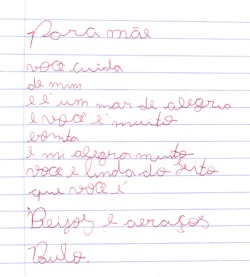 Para mãe
voce cuida
de mim
e é um mar de alegria
e voçe é muito
bonita
e mi alegra muito
voce e linda do jeito
que voce é
Beijos e abraços
Paulo.